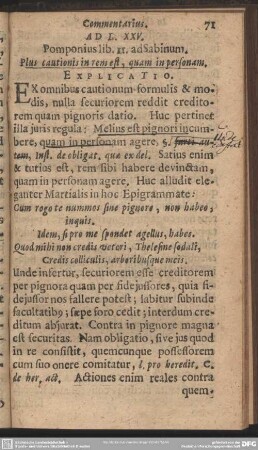 Commentarius. 71
AD L. XXV.
Pomponius lib. II. ad Sabinum.
Plus cautionis in rem est, quam in personam.
EXPLICATIO.
EX omnibus cautionum formulis & mo-
dis, nulla securiorem reddit credito-
rem quam pignoris datio. Huc pertinet
illa juris regula: Melius est pignori incum-
bere, quam in personam agere, §.
tem, inst. de obligat. quæ ex del. Satius enim
& tutius est, rem sibi habere devinctam,
quam in personam agere. Huc alludit ele-
ganter Martialis in hoc Epigrammate:
Cum rogo te nummos sine pignore, non habeo,
inquis.
Idem, si pro me spondet agellus, habes.
Quod mihi non credis veteri, Thelesine sodali,
Credis colliculis, arboribusque meis.
Unde infertur, securiorem esse creditorem
per pignora quam per fidejussores, quia fi-
dejussor nos fallere potest; labitur subinde
facultatib9; sæpe foro cedit; interdum cre-
ditum abjurat. Contra in pignore magna
est securitas. Nam obligatio, sive jus quod
in re consistit, quemcunque possessorem
cum suo onere comitatur, l. pro heredit. C.
de her. act. Actiones enim reales contra
quem-